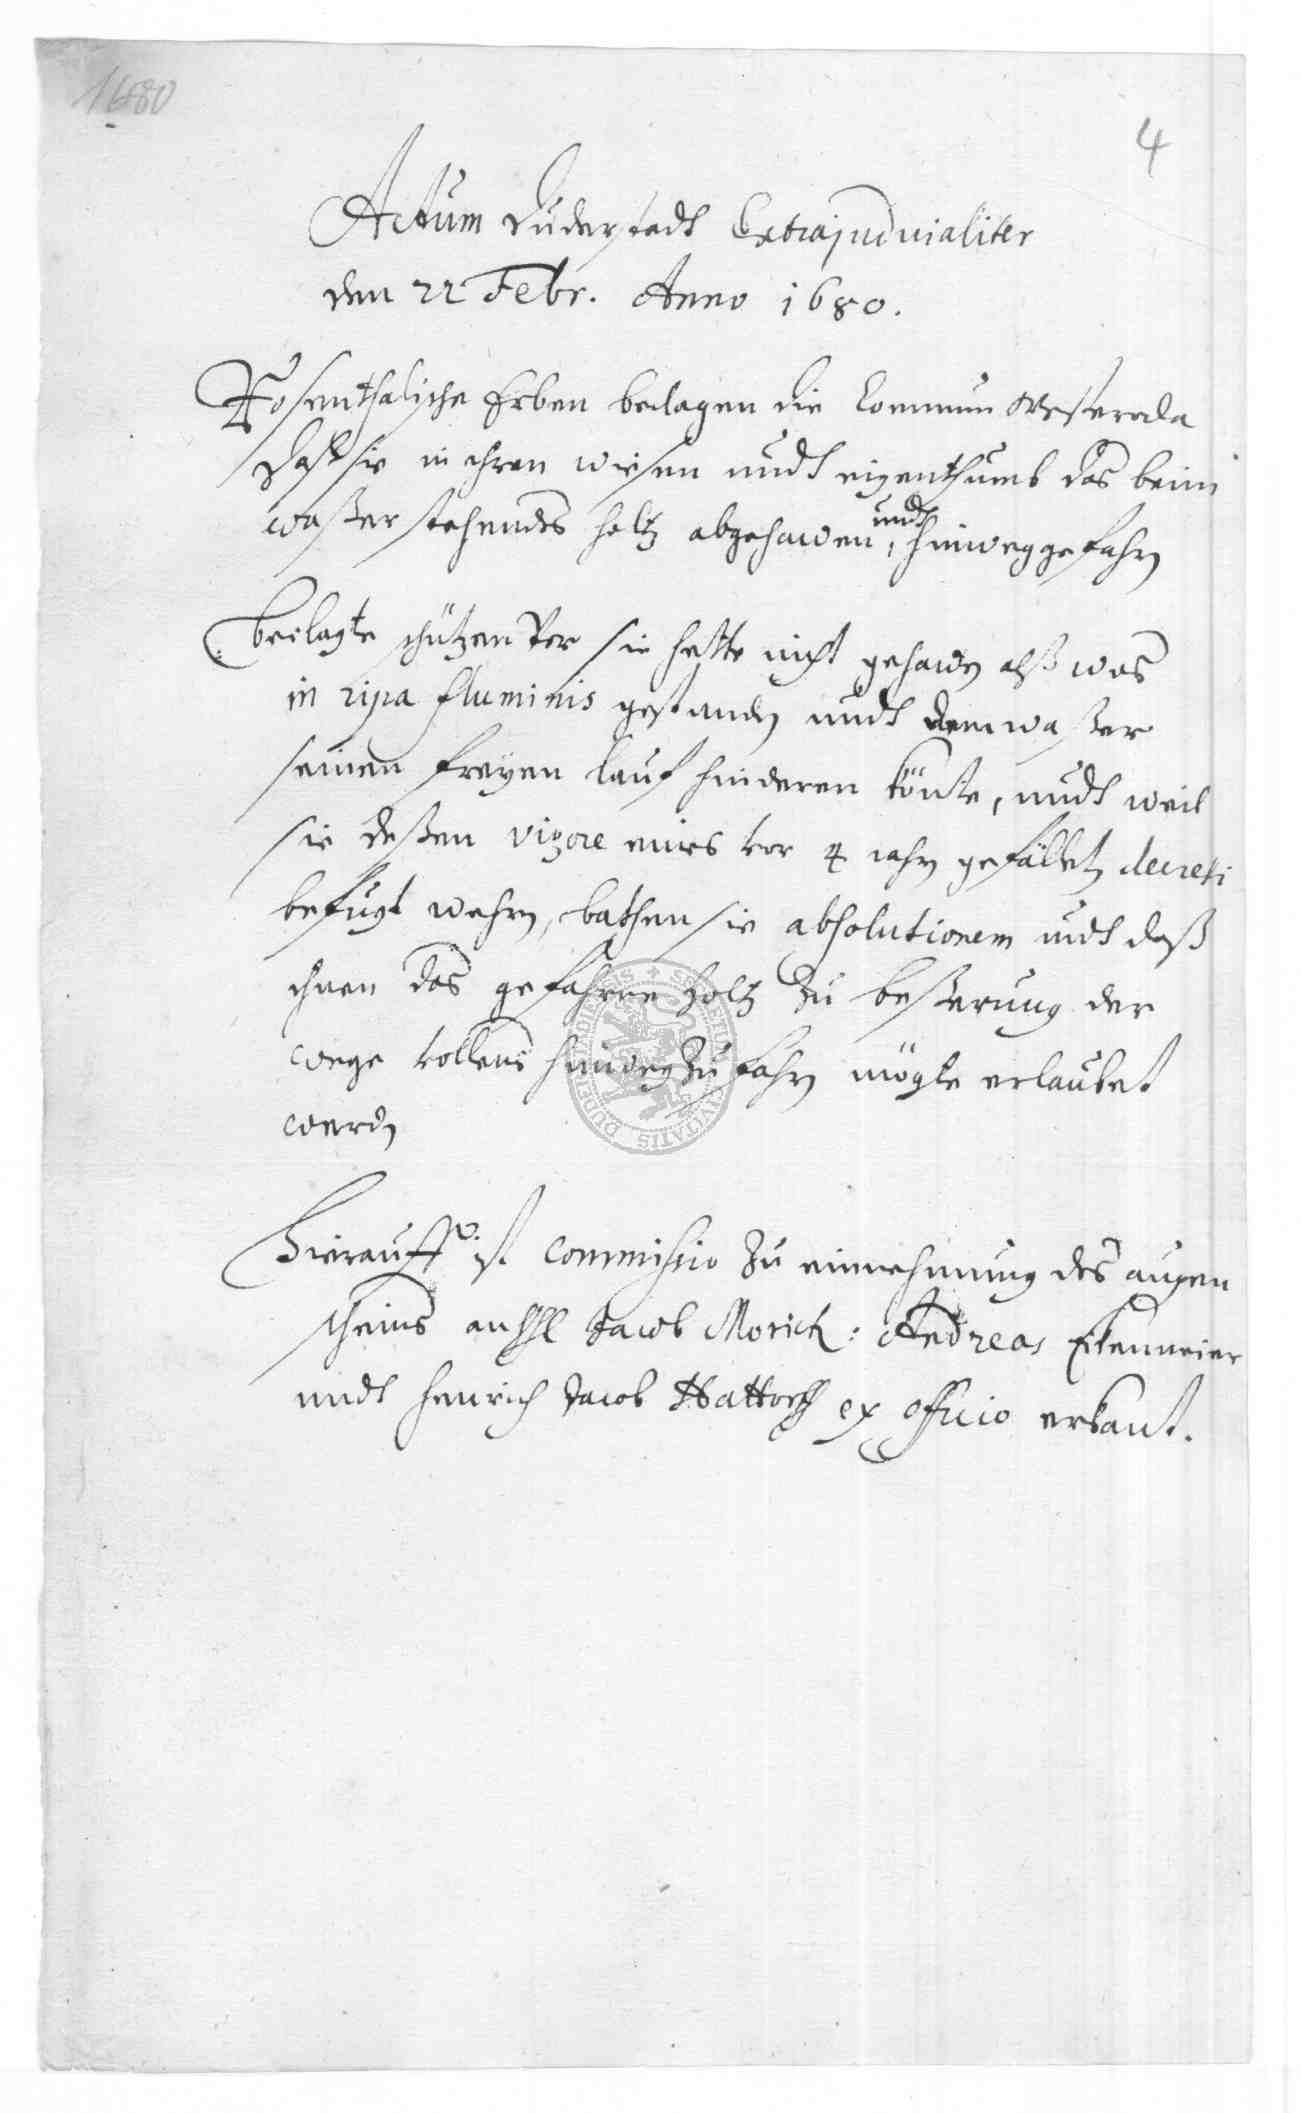 1680
4
Actum Duderstadt Extrajudicialiter
den 22 Febr. Anno 1680.
Rosenthalische Erben beclagen die Commun Westerode
daß sie in ihren wiesen undt eigenthumb das beim
waßer stehendes holtz abgehawen undt hinweggefahrn
Beclagte schützen vor sie hette nicht gehawen alß was
in ripa fluminis gestanden undt dem waßer
seinen freyen lauf hinderen könte, undt weil
sie deßen vigore eines vor 4 jahrn gefälleten decreti
befugt wehren, bathen sie absolutionem undt daß
ihnen das gefahrne holtz zu beßerung der
wege vollens hinwegzufahrn mögte erlaubet
werden
Hierauff ist commissio zu einnehmung des augen
scheins auf Jacob Morick: Andreas Eckenmeier
undt Henrich Jacob Hattorff ex officio erkant.